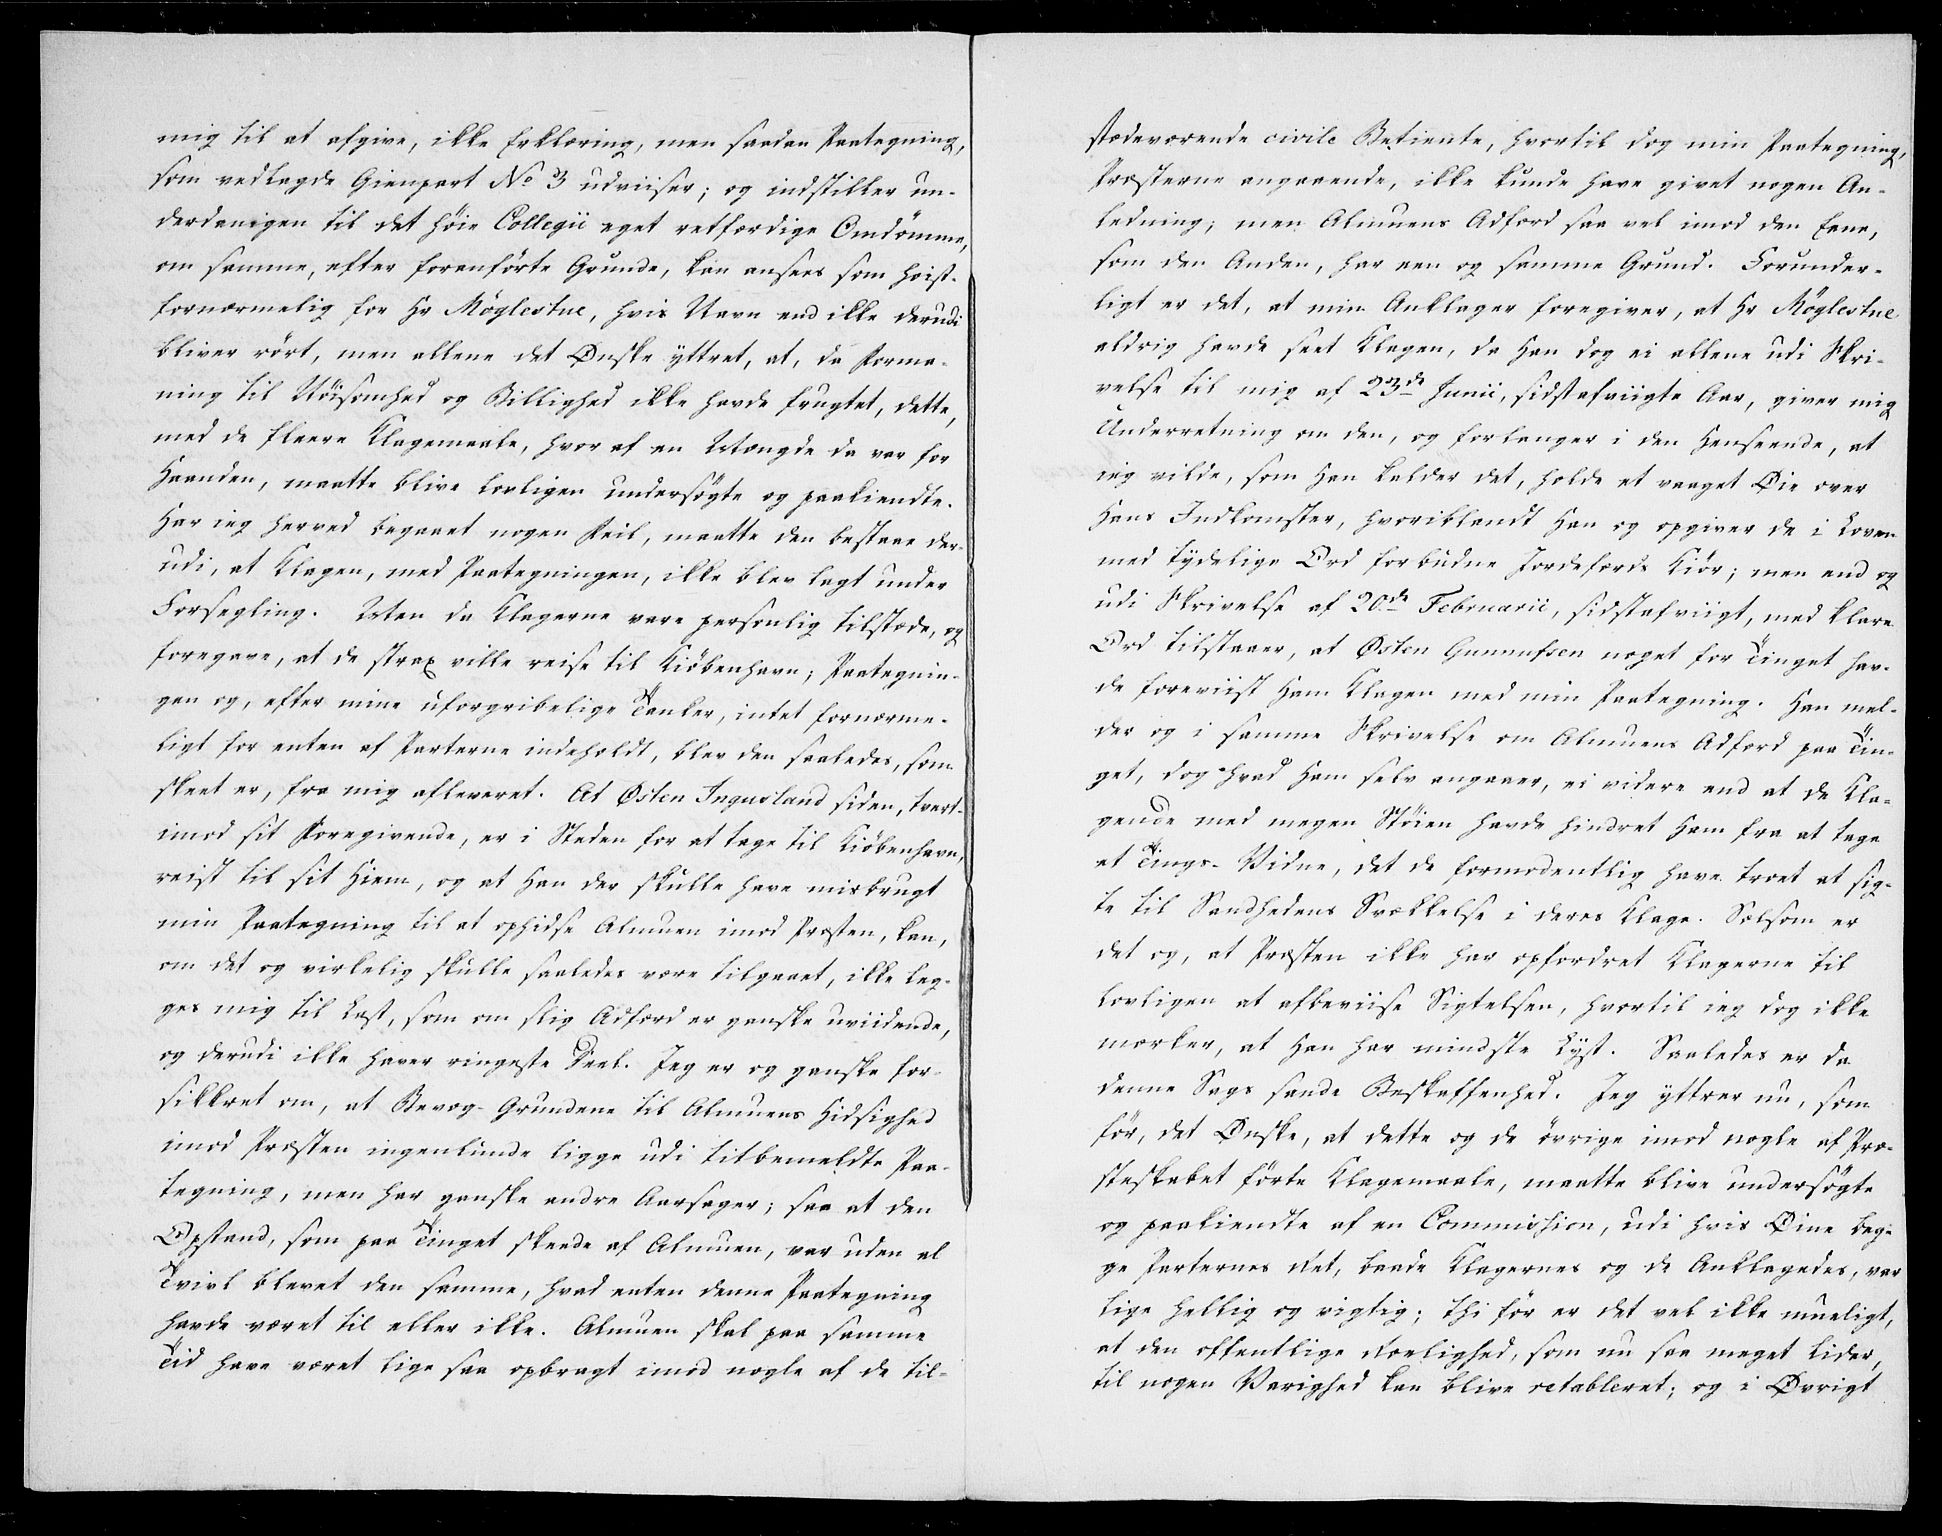 mig til at afgive, ikke Erklæring, men saadan Paategning,
som vedlagde Gienpart No 3 udviiser; og indstiller un-
derdanigen til det høie Collegii eget retfærdige Omdømme,
om samme, efter foranførte Grunde, kan ansees som høist-
fornærmelig for Hr Møglestue, hvis Navn end ikke derudi
bliver rørt, men allene det Ønske yttret, at, da Forma-
ning til Nøisomhed og Billighed ikke havde frugtet, dette,
med de fleere Klagemaale, hvor af en Mængde da var for
Haanden, maatte blive lovligen undersøgte og paakiendte.
Har ieg herved begaaet nogen Feil, maatte den bestaae der-
udi, at Klagen, med Paategningen, ikke blev lagt under
Forsegling. Men da Klagerne vare personlig tilstæde, og
foregave, at de strax ville reise til Kiøbenhavn; Paategnin-
gen og, efter mine uforgribelige Tanker, intet fornærme-
ligt for enten af Parterne indeholdt, blev den saaledes, som
skeet er, fra mig afleveret. At Østen Ingusland siden, tvert-
imod sit Foregivende, er i Steden for at tage til Kiøbenhavn,
reist til sit Hiem, og at Han der skulle have misbrugt
min Paategning til at ophidse Almuen imod Præsten, kan,
om det og virkelig skulle saaledes være tilgaaet, ikke læg-
ges mig til Last, som om slig Adfærd er ganske uviidende,
og derudi ikke haver ringeste Deel. Jeg er og ganske for-
sikkret om, at Bevæg-Grundene til Almuens Hidsighed
imod Præsten ingenlunde ligge udi titbemeldte Paa-
tegning, men har ganske andre Aarsager; saa at den
Opstand, som paa Tinget skeede af Almuen, var uden al
Tvivl blevet den samme, hvad enten denne Paategning
havde været til eller ikke. Almuen skal paa samme
Tid have været lige saa opbragt imod nogle af de til-
stædeværende civile Betiente, hvortil dog min Paategning,
Præsterne angaaende, ikke kunde have givet nogen An-
ledning; men Almuens Adfærd saa vel imod den Eene,
som den Anden, har een og samme Grund. Forunder-
ligt er det, at min Anklager foregiver, at Hr Møglestue
aldrig havde seet Klagen, da Han dog ei allene udi Skri-
velse til mig af 23de Junii, sidstafviigte Aar, giver mig
Underretning om den, og forlanger i den Henseende, at
ieg vilde, som Han kalder det, holde et vaaget Øie over
Hans Indkomster, hvoriblandt Han og opgiver de i Loven
med tydelige Ord forbudne Jordefærds Kiør; men end og
udi Skrivelse af 20de Februarii, sidstafviigt, med klare
Ord tilstaaer, at Østen Gunnufsen noget før Tinget hav-
de foreviist Ham Klagen med min Paategning. Han mel-
der og i samme Skrivelse om Almuens Adfærd paa Tin-
get, dog hvad Ham selv angaaer, ei videre end at de Kla-
gende med megen Støien havde hindret Ham fra at tage
et Tings-Vidne, det de formodentlig have troet at sig-
te til Sandhedens Svækkelse i deres Klage. Sælsom er
det og, at Præsten ikke har opfordret Klagerne til
lovligen at afbeviise Sigtelsen, hvortil ieg dog ikke
mærker, at Han har mindste Lyst. Saaledes er da
denne Sags sande Beskaffenhed. Jeg yttrer nu, som
før, det Ønske, at dette og de øvrige imod nogle af Præ-
steskabet førte Klagemaale, maatte blive undersøgte
og paakiendte af en Commission, udi hvis Øine beg-
ge Parternes Ret, baade Klagernes og de Anklagedes, var
lige hellig og vigtig; thi før er det vel ikke mueligt,
at den offentlige Roelighed, som nu saa meget lider,
til nogen Varighed kan blive retableret; og i Øvrigt